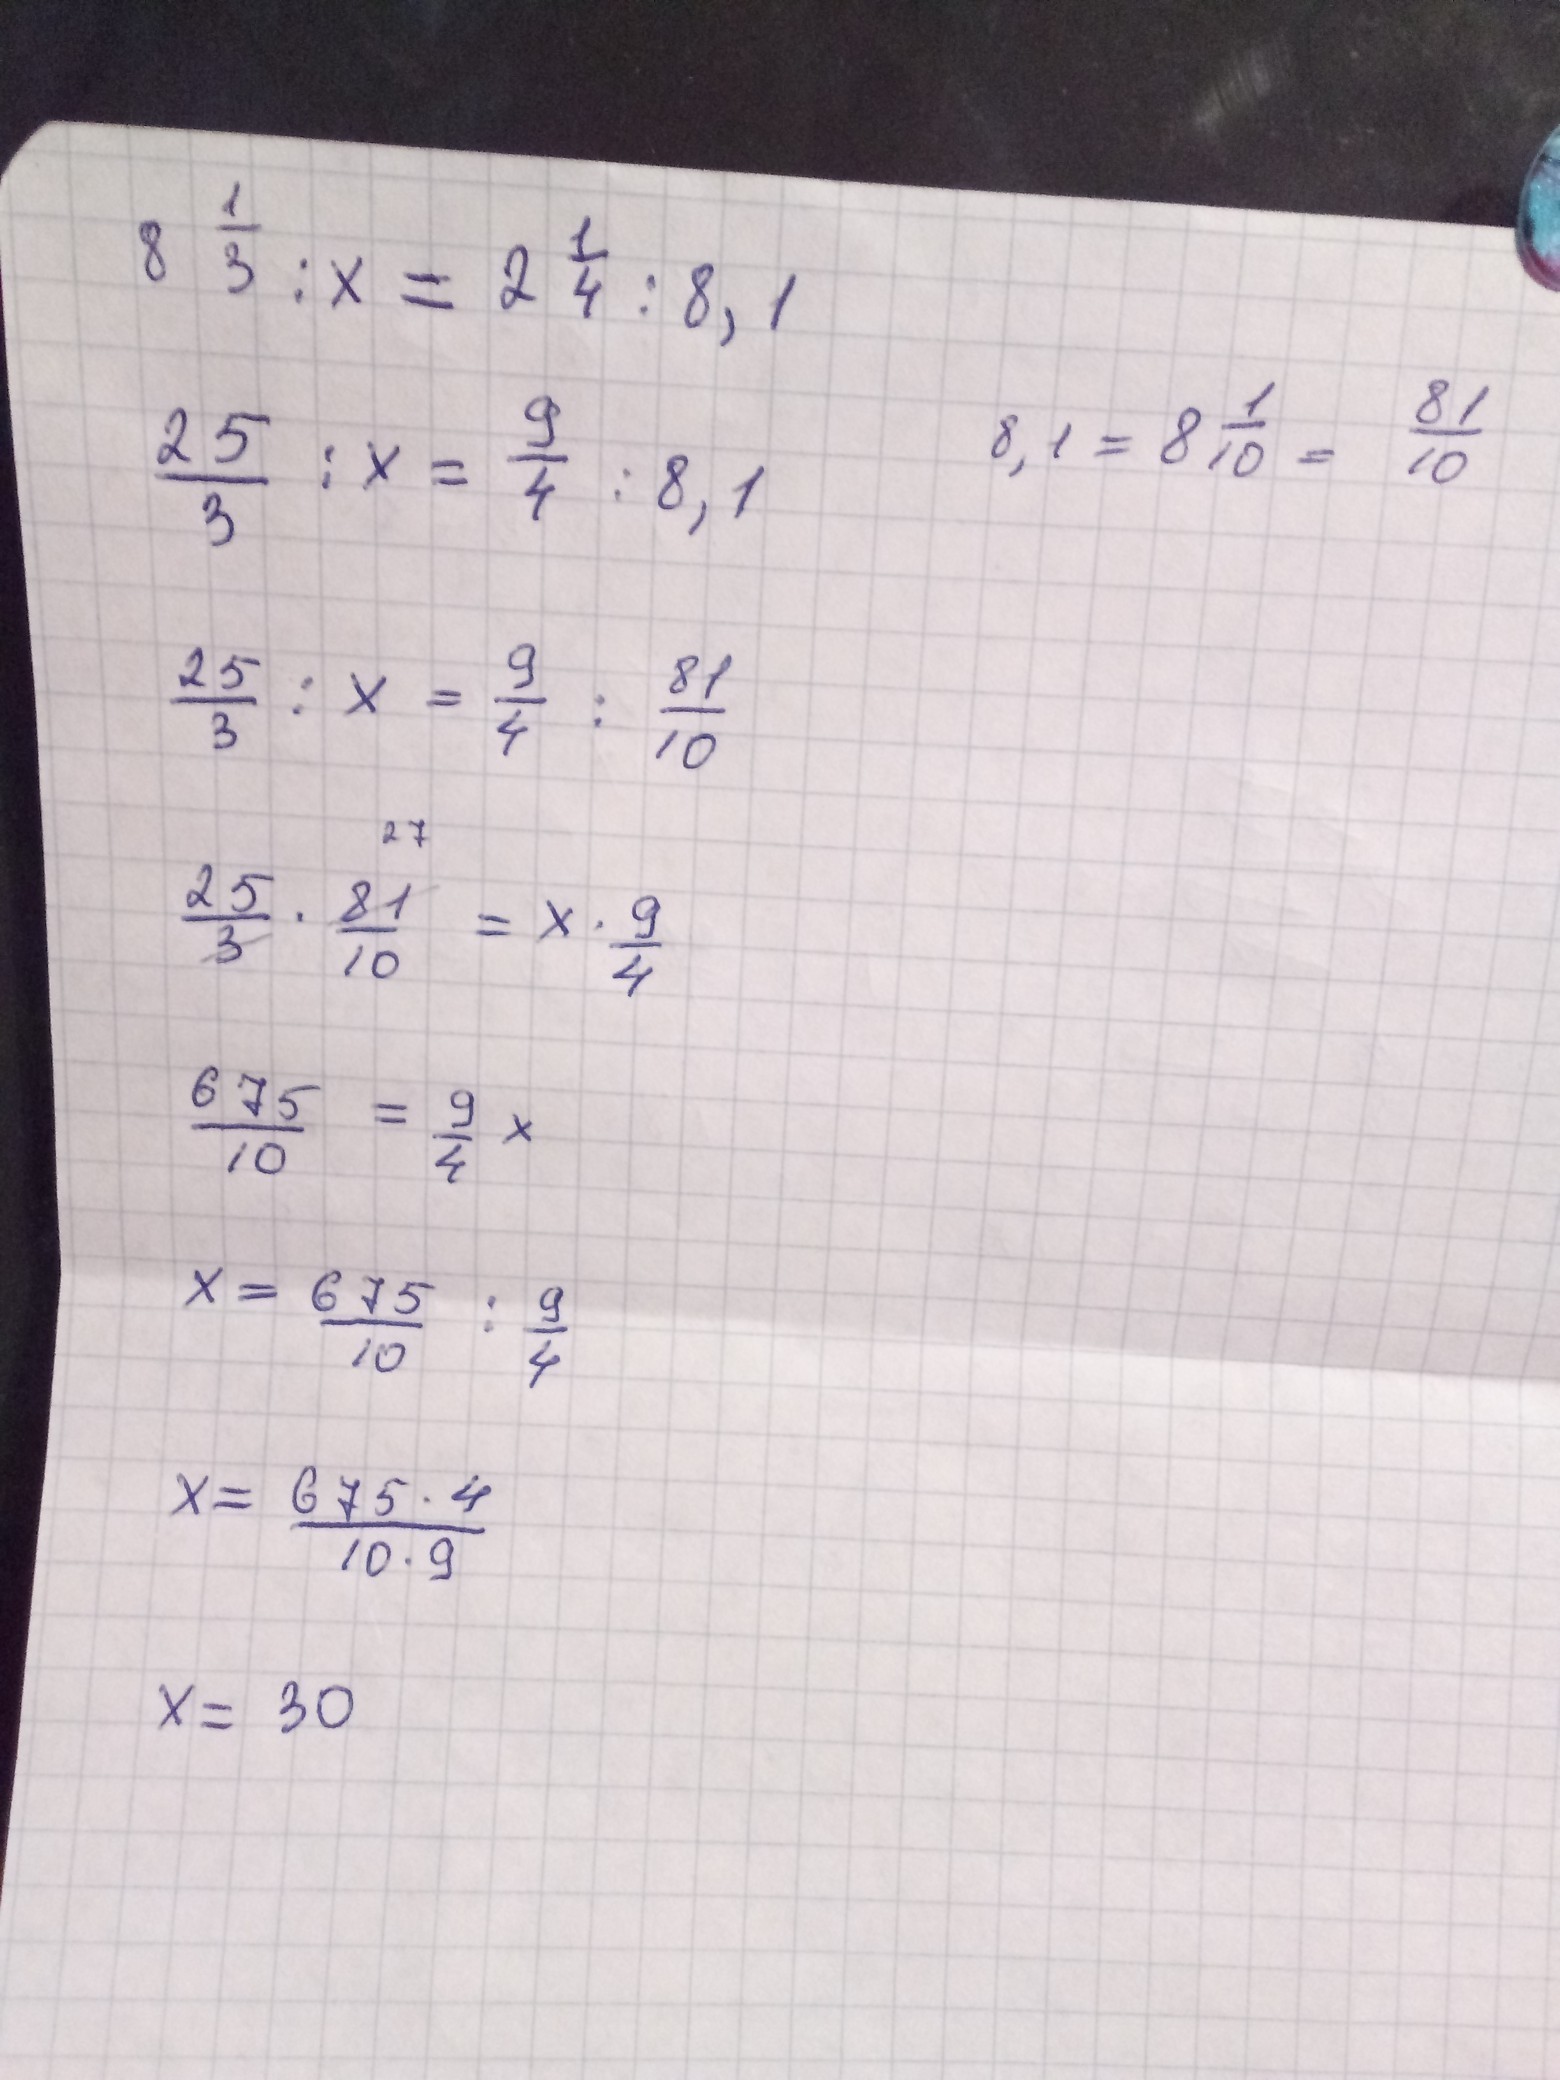 8 1/3 : x = 2 1/4 : 8,1
25/3 : x = 9/4 : 8,1
8,1 = 8 1/10 = 81/10
25/3 : x = 9/4 : 81/10
27
25/3 · 81/10 = x · 9/4
675/10 = 9/4 x
x = 675/10 : 9/4
x = 675·4/10·9
x = 30